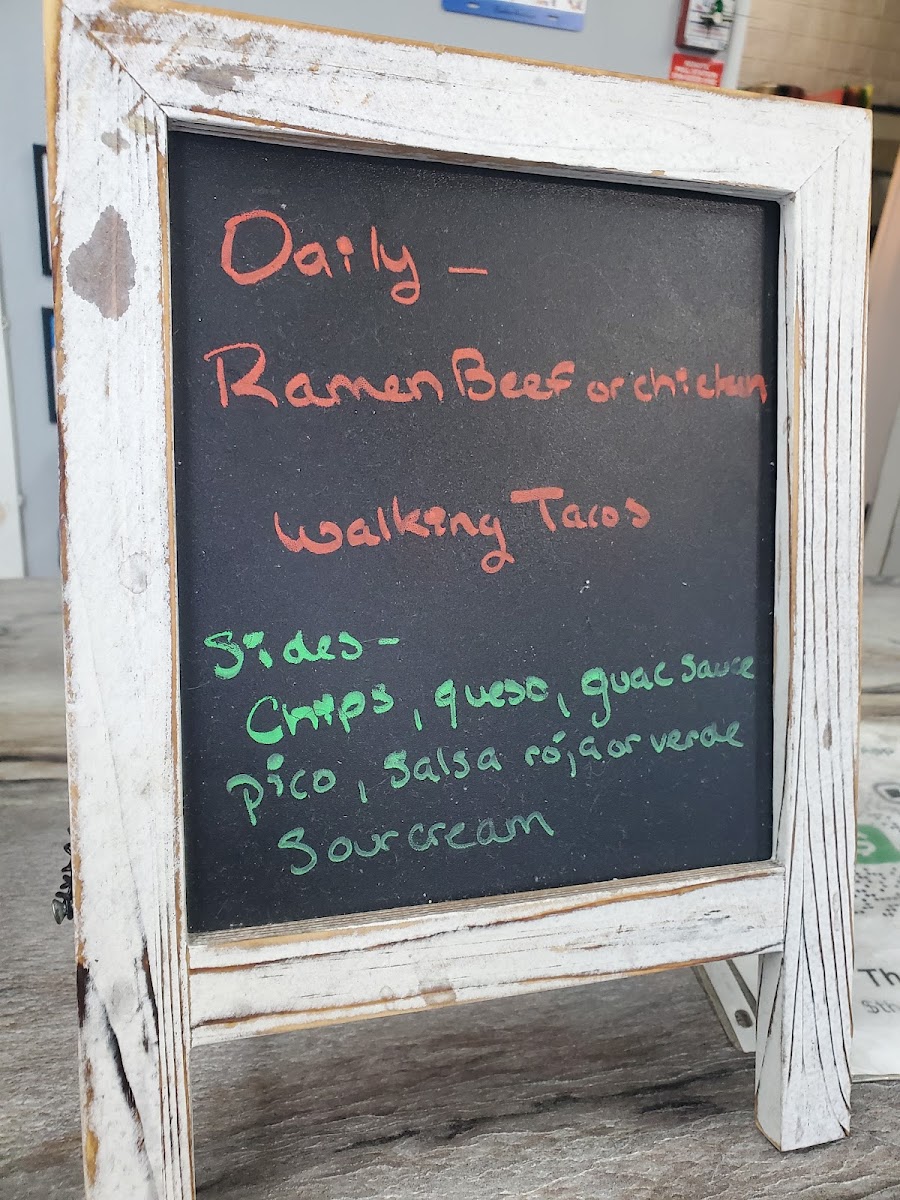 Daily -
Ramen Beef or chicken
Walking Tacos
Sides-
Chips, queso, guac sauce
pico, Salsa roja or verde
Sour cream
Th